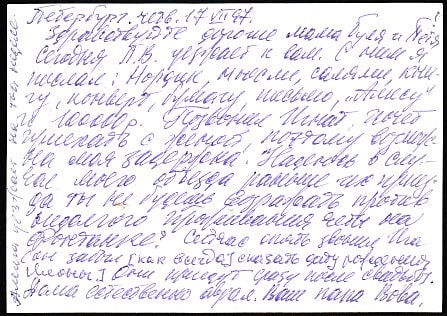 Петербург. четв. 17 VII 97.
Здравствуйте дорогие мама Гуля и Петя
Сегодня Л.В. уезжает к вам. С ним я
послал: мюсли, салями, кни-
гу, конверт, бумагу, письмо, „Алису"
и Позвонил Игнат, хочет
приехать с женой, поэтому возмож-
на моя задержка. Надеюсь в слу-
чае моего отъезда раньше их приез-
да ты не будешь возражать против
недолгого проживания четы на
Фонтанке? Сейчас опять звонил Иг-
он забыл [как всегда] сказать дату рождения
Они приедут сразу после свадьбы.
Дома естественно аврал. Ваш папа Вова.
уезжает на